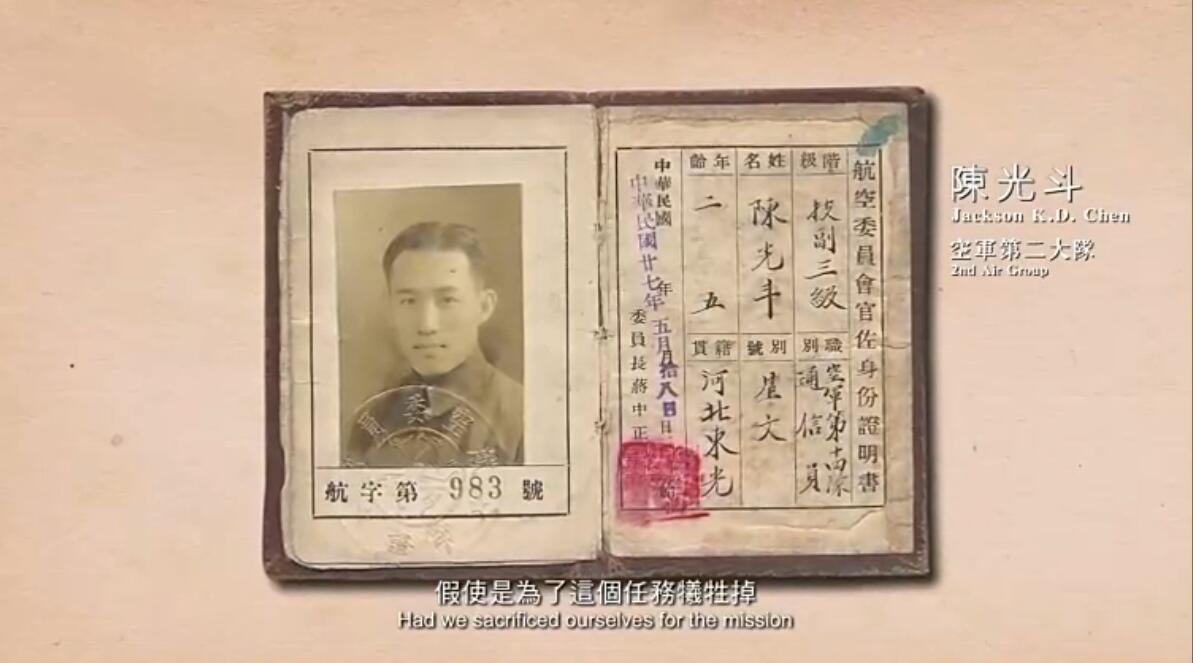 航字第 983 號
航空委員會官佐身份證明書
階級
技副三級
職別
空軍第十四隊
通信員
姓名
陳光斗
別號
星文
年齡
二五
籍貫
河北東光
中華民國 年 月 日
中華民國廿七年五月拾八日
委員長蔣中正
陳光斗
Jackson K.D. Chen
空軍第二大隊
2nd Air Group
假使是為了這個任務犧牲掉
Had we sacrificed ourselves for the mission